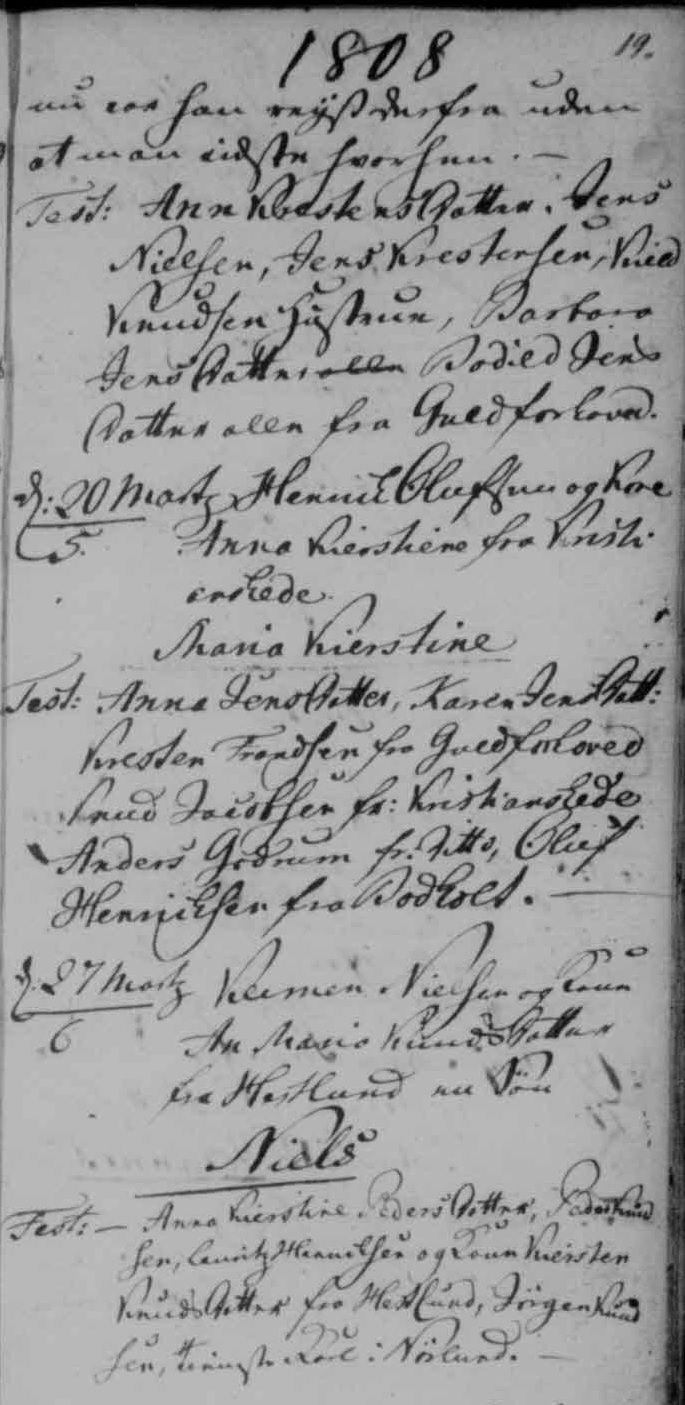 1808
19.
nu var han reyst derfra uden
at man vidste hvorhen. —
Test: Ann Krestens Datter. Jens
Nielsen, Jens Krestensen, Kield
Knudsen Hustrue, Barbara
Jens Datter alle Bodild Jens
Datter alle fra Guldforhoved.
d: 20 Martz Henrik Olufsen og Kone
5. Anna Kierstine fra Kristi-
anshede.
Maria Kierstine
Test: Anna Jens Datter, Karen Jens Datt:
Kresten Frandsen fra Guldforhoved
Knud Jacobsen fr: Kristianshede
Anders Grdrum fr. Ditto, Oluf
Henriksen fra Bodholt. —
d. 27 Martz Klemen Nielsen og Koun
6 An Maria Knuds Datter
fra Hestlund en Søn
Niels
Test: — Anna Kierstine Peders Datter, Peder Knud
sen, Lauritz Henriksen og Koun Kiersten
Knuds Datter fra Hestlund, Jörgen Knud
sen, tienste Karl i Nörlund. —